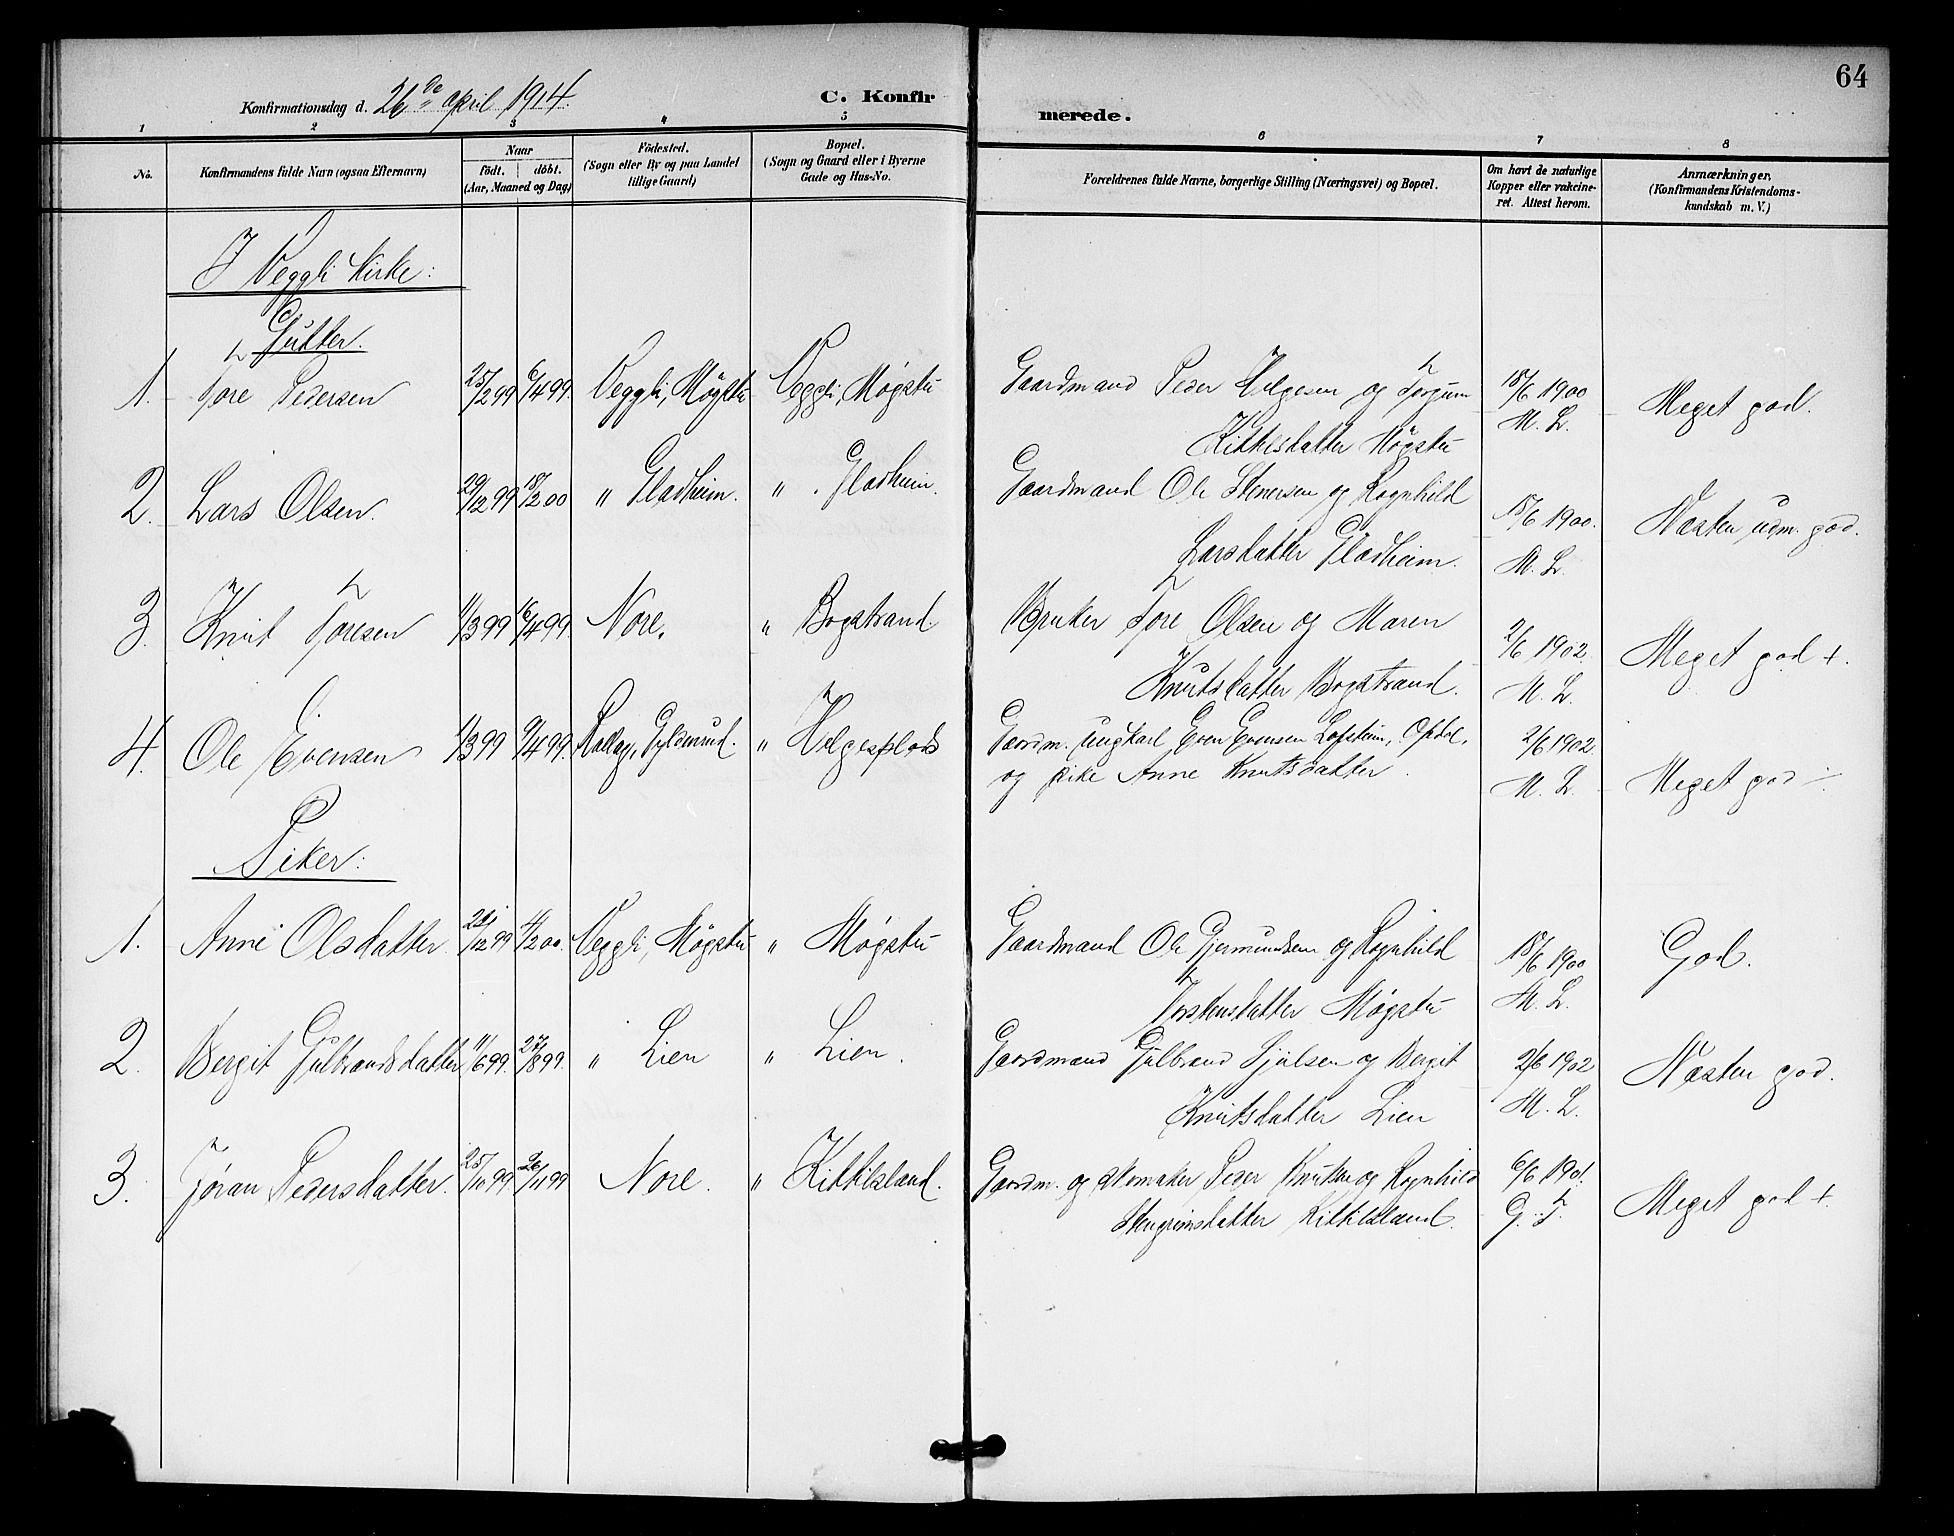 64
Konfirmationsdag d. 26de April 1914.
C. Konfirmerede.
1 2 3 4 5 6 7 8
No.
Konfirmandens fulde Navn (ogsaa Efternavn)
Naar
födt. döbt.
(Aar, Maaned og Dag)
Födested.
(Sogn eller By og paa Landet
tillige Gaard)
Bopæl.
(Sogn og Gaard eller i Byerne
Gade og Hus-No.
Forældrenes fulde Navne, borgerlige Stilling (Næringsvei) og Bopæl.
Om havt de naturlige
Kopper eller vakcine-
ret. Attest herom.
Anmærkninger,
(Konfirmandens Kristendoms-
kundskab m. V.)
I Veggli kirke:
Gutter.
1. Tore Pedersen 25/2 99 6/4 99. Veggli, Møgstu Veggli, Møgstu Gaardmand Peder Helgesen og Torgun 15/6 1900 Meget god.
Kittilsdatter Møgstu M. L.
2. Lars Olsen. 29/12 99 18/2 00 " Gladheim. " Gladheim. Gaardmand Ole Stenersen og Ragnhild 15/6 1900. Næsten udm. god.
Larsdatter Gladheim. M. L.
3. Knut Toresen 11/3 99 16/4 99. Nore. " Bogstrand. Bruker Tore Olsen og Maren 2/6 1902 Meget god +.
Knutsdatter Bogstrand. M. L.
4. Ole Evensen 1/3 99 9/4 99. Rollag, Gyldenrud. " Helgesplads Gaardm. ungkarl Even Evensen Lofsheim, Opdal, 2/6 1902. Meget god ÷.
og pike Anne Knutsdatter. M. L.
Piker:
1. Anne Olsdatter 4/2 00. Veggli, Møgstu " Møgstu Gaardmand Ole Gjermundsen og Ragnhild 15/6 1900 God.
Torstensdatter Møgstu M. L.
2. Bergit Gulbrandsdatter 11/6 99. 27/8 99. " Lien " Lien. Gaardmand Gulbrand Sjulsen og Bergit 2/6 1902 Næsten god.
Knutsdatter Lien M. L.
3. Jøran Pedersdatter. 25/10 99 26/11 99 Nore. " Kittilsland. Gaardm. og skomaker Peder Knutsen og Ragnhild 6/6 1901. Meget god +.
Stengrimsdatter Kittilsland. G. T.